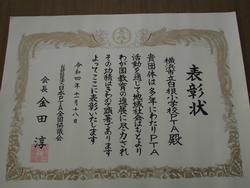 表彰状
横浜市立白根小学校PTA殿
貴団体は多年にわたりPTA
活動を通じて地域社会はもとより
わが国教育の進展に尽力され
その功績はきわめて顕著であります
よってここに表彰いたします
令和四年十一月十八日
公益社団法人日本PTA全国協議会
会長 金田 淳